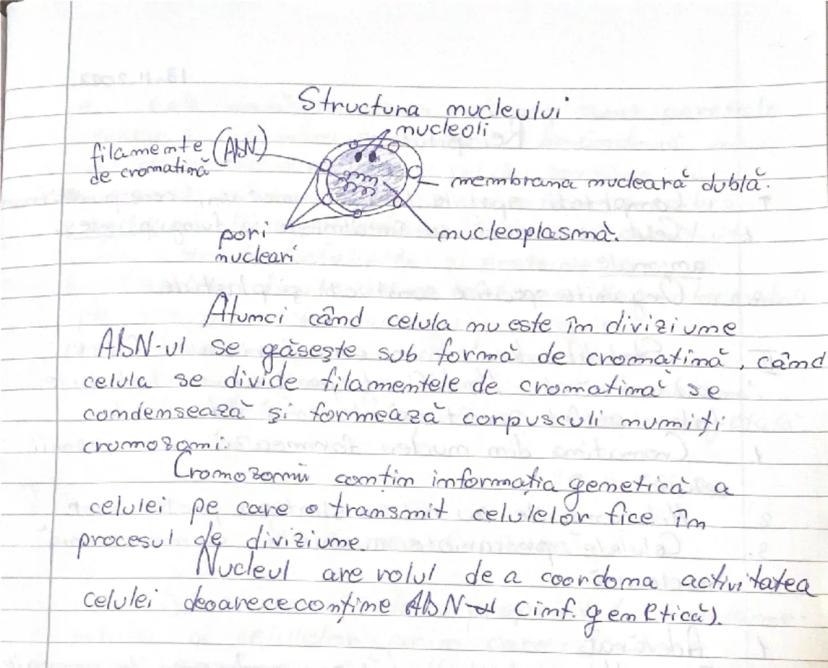 Structura nucleului
nucleoli
filamente (ADN)
de cromatină
membrana nucleară dublă.
pori
nucleari
nucleoplasmă.
Atunci când celula nu este în diviziune
ADN-ul se găsește sub formă de cromatină, când
celula se divide filamentele de cromatină se
condensează și formează corpusculi numiți
cromozomi.
Cromozomii contin informația genetică a
celulei pe care o transmit celulelor fice în
procesul de diviziune.
Nucleul are rolul de a coordona activitatea
celulei deoarece conține ADN-ul (inf. genetică).